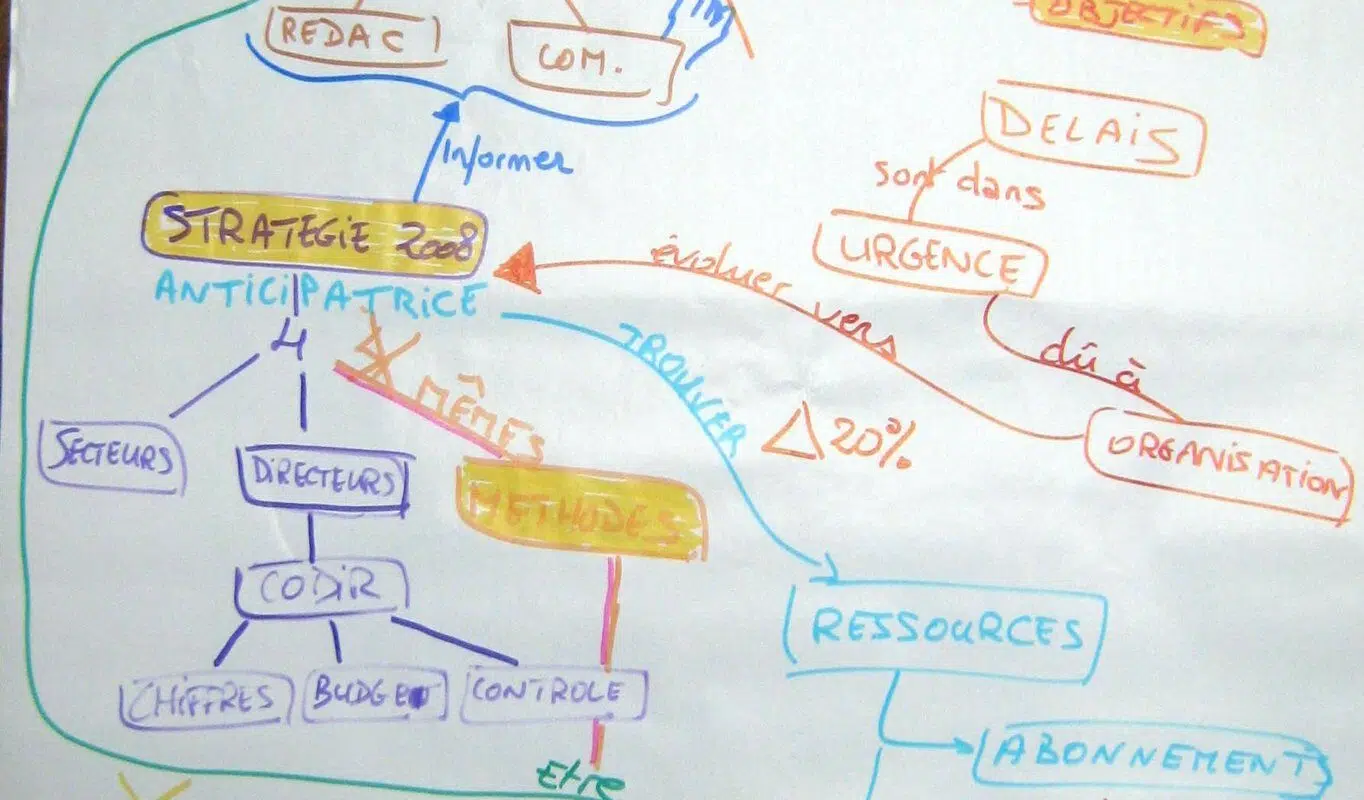 OBJECTIFS
REDAC
COM.
DELAIS
Informer
sont dans
STRATEGIE 2008
URGENCE
évoluer vers
ANTICIPATRICE
TROUVER
dû à
4
MÊMES
Δ 20%
ORGANISATION
SECTEURS
DIRECTEURS
METHODES
CODIR
RESSOURCES
CHIFFRES
BUDGET
CONTROLE
ABONNEMENTS
Etre